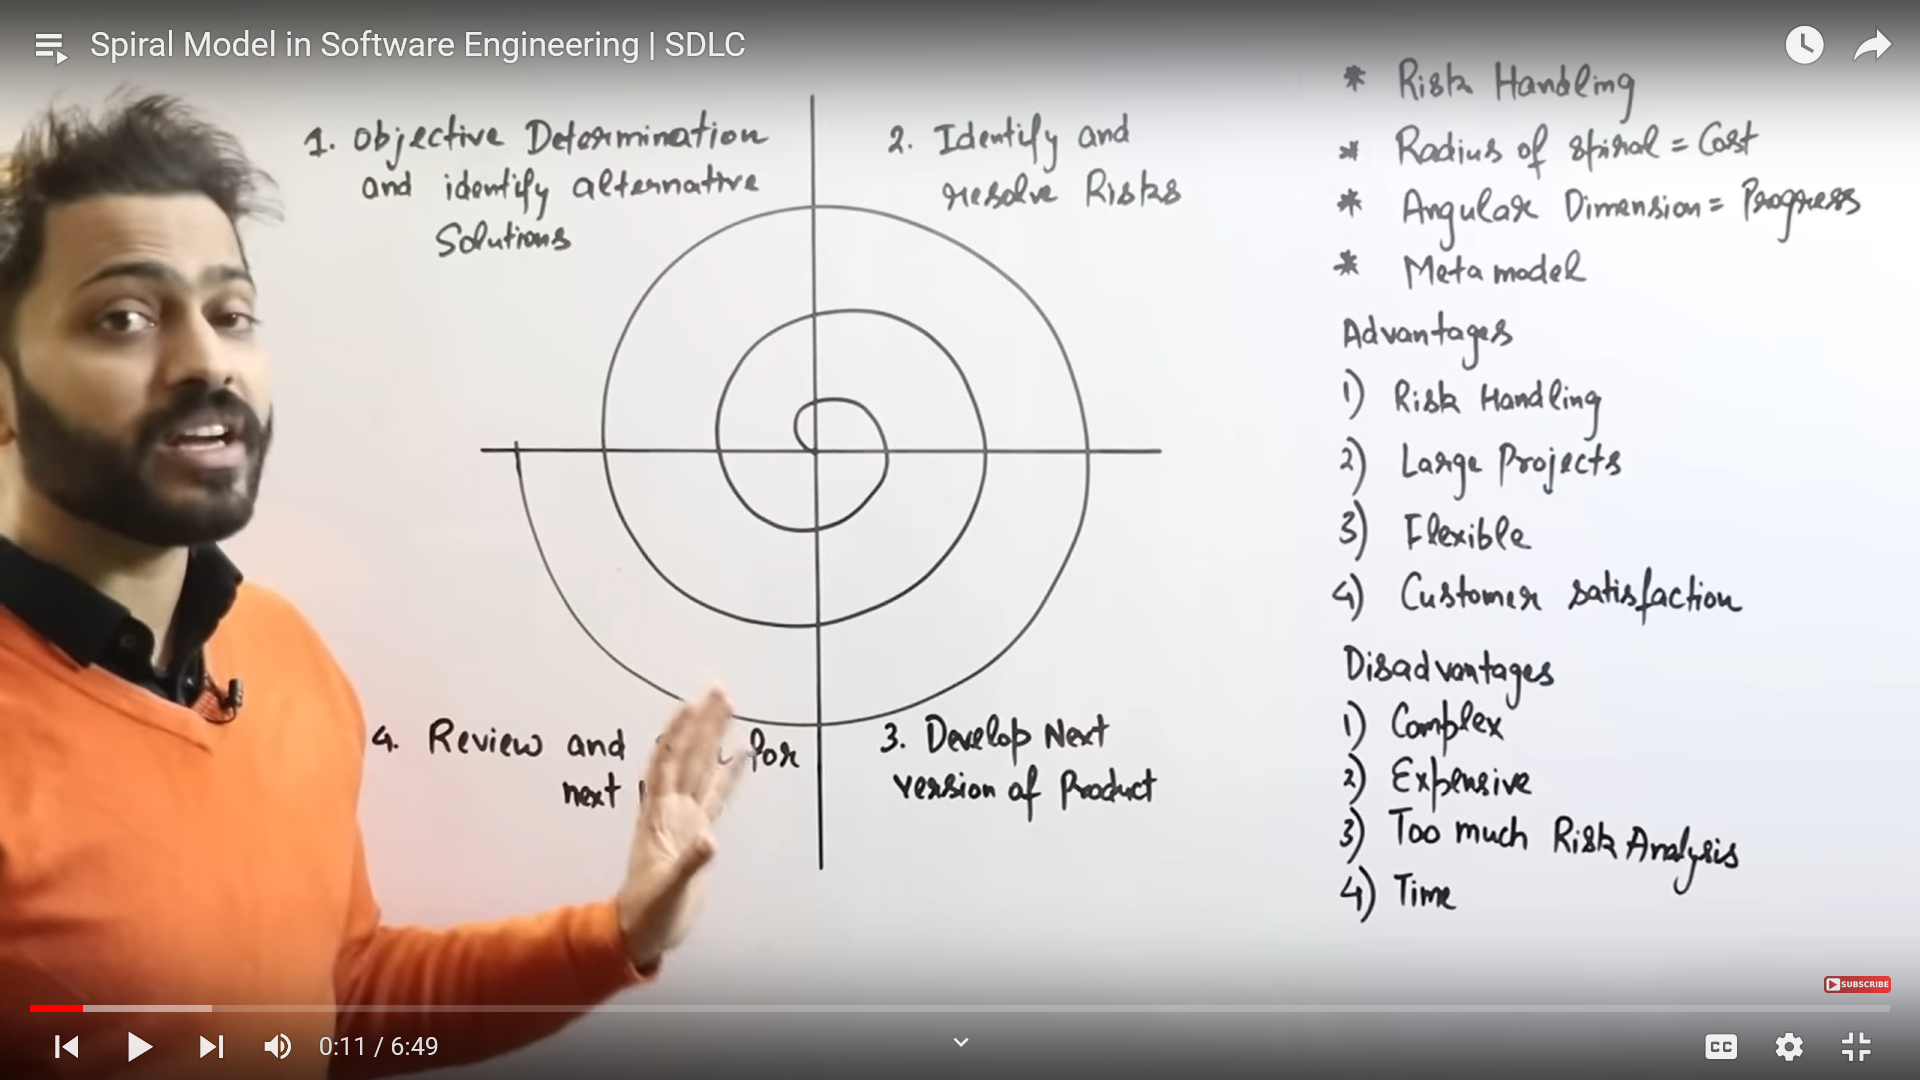 Spiral Model in Software Engineering | SDLC
1. Objective Determination
and identify alternative
Solutions
2. Identify and
resolve Risks
4. Review and for
next
3. Develop Next
version of Product
* Risk Handling
* Radius of spiral = Cost
* Angular Dimension = Progress
* Meta model
Advantages
1) Risk Handling
2) Large Projects
3) Flexible
4) Customer satisfaction
Disadvantages
1) Complex
2) Expensive
3) Too much Risk Analysis
4) Time
SUBSCRIBE
0:11 / 6:49
CC